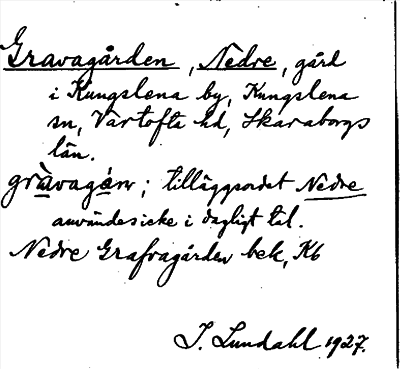 Gravagården, Nedre, gård
i Kungslena by, Kungslena
sn, Vartofta hd, Skaraborgs
län.
gràvagáɳ; tilläggsordet Nedre
användes icke i dagligt tal.
Nedre Grafvagården bek, Kb
I. Lundahl 1927.